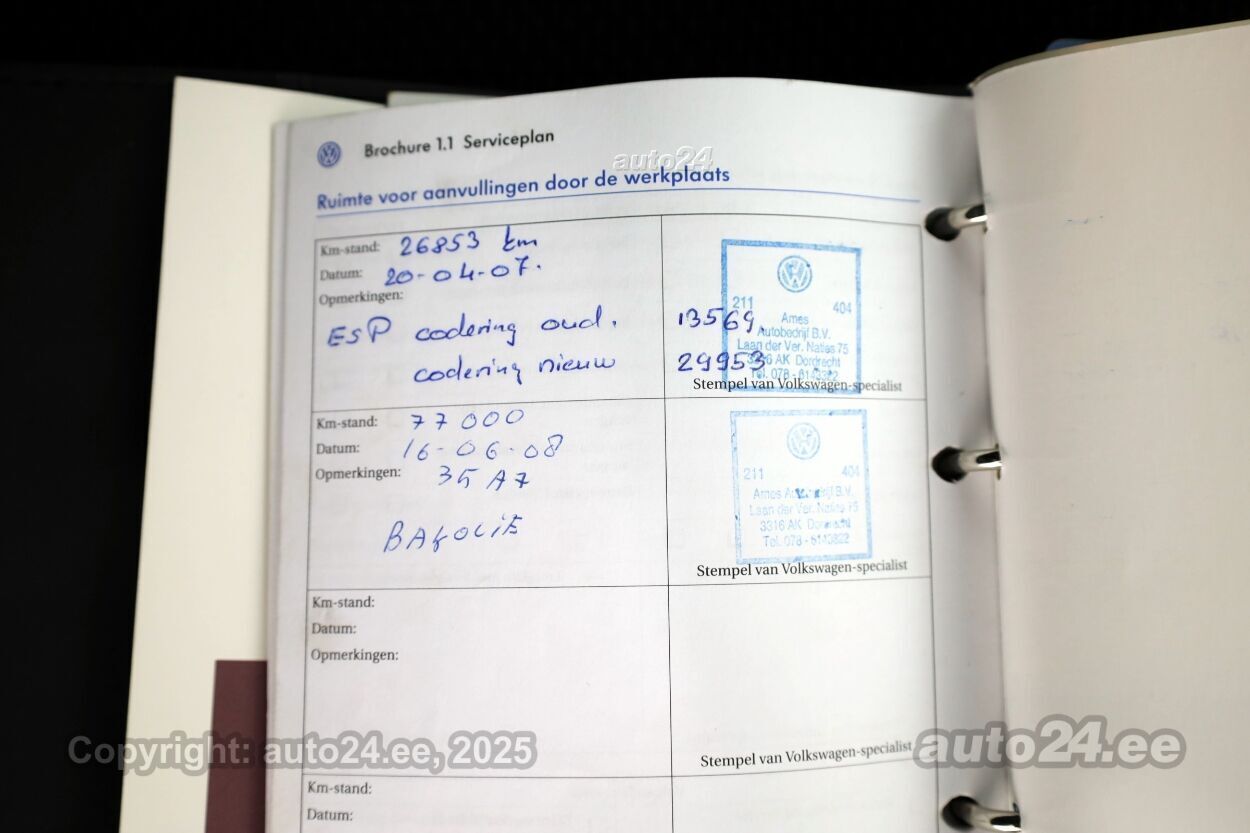 Brochure 1.1 Serviceplan
auto24
Ruimte voor aanvullingen door de werkplaats
Km-stand: 26853 km
Datum: 20-04-07.
Opmerkingen:
ESP codering oud. 13569
codering nieuw 29953
211 404
Ames
Autobedrijf B.V.
Laan der Ver. Naties 75
3316 AK Dordrecht
Tel. 078 - 6143822
Stempel van Volkswagen-specialist
Km-stand: 77000
Datum: 16-06-08
Opmerkingen: 35 A7
211 404
Ames Autobedrijf B.V.
Laan der Ver. Naties 75
3316 AK Dordrecht
Tel. 078 - 6143822
Stempel van Volkswagen-specialist
Km-stand:
Datum:
Opmerkingen:
Stempel van Volkswagen-specialist
Copyright: auto24.ee, 2025
auto24.ee
Km-stand:
Datum: